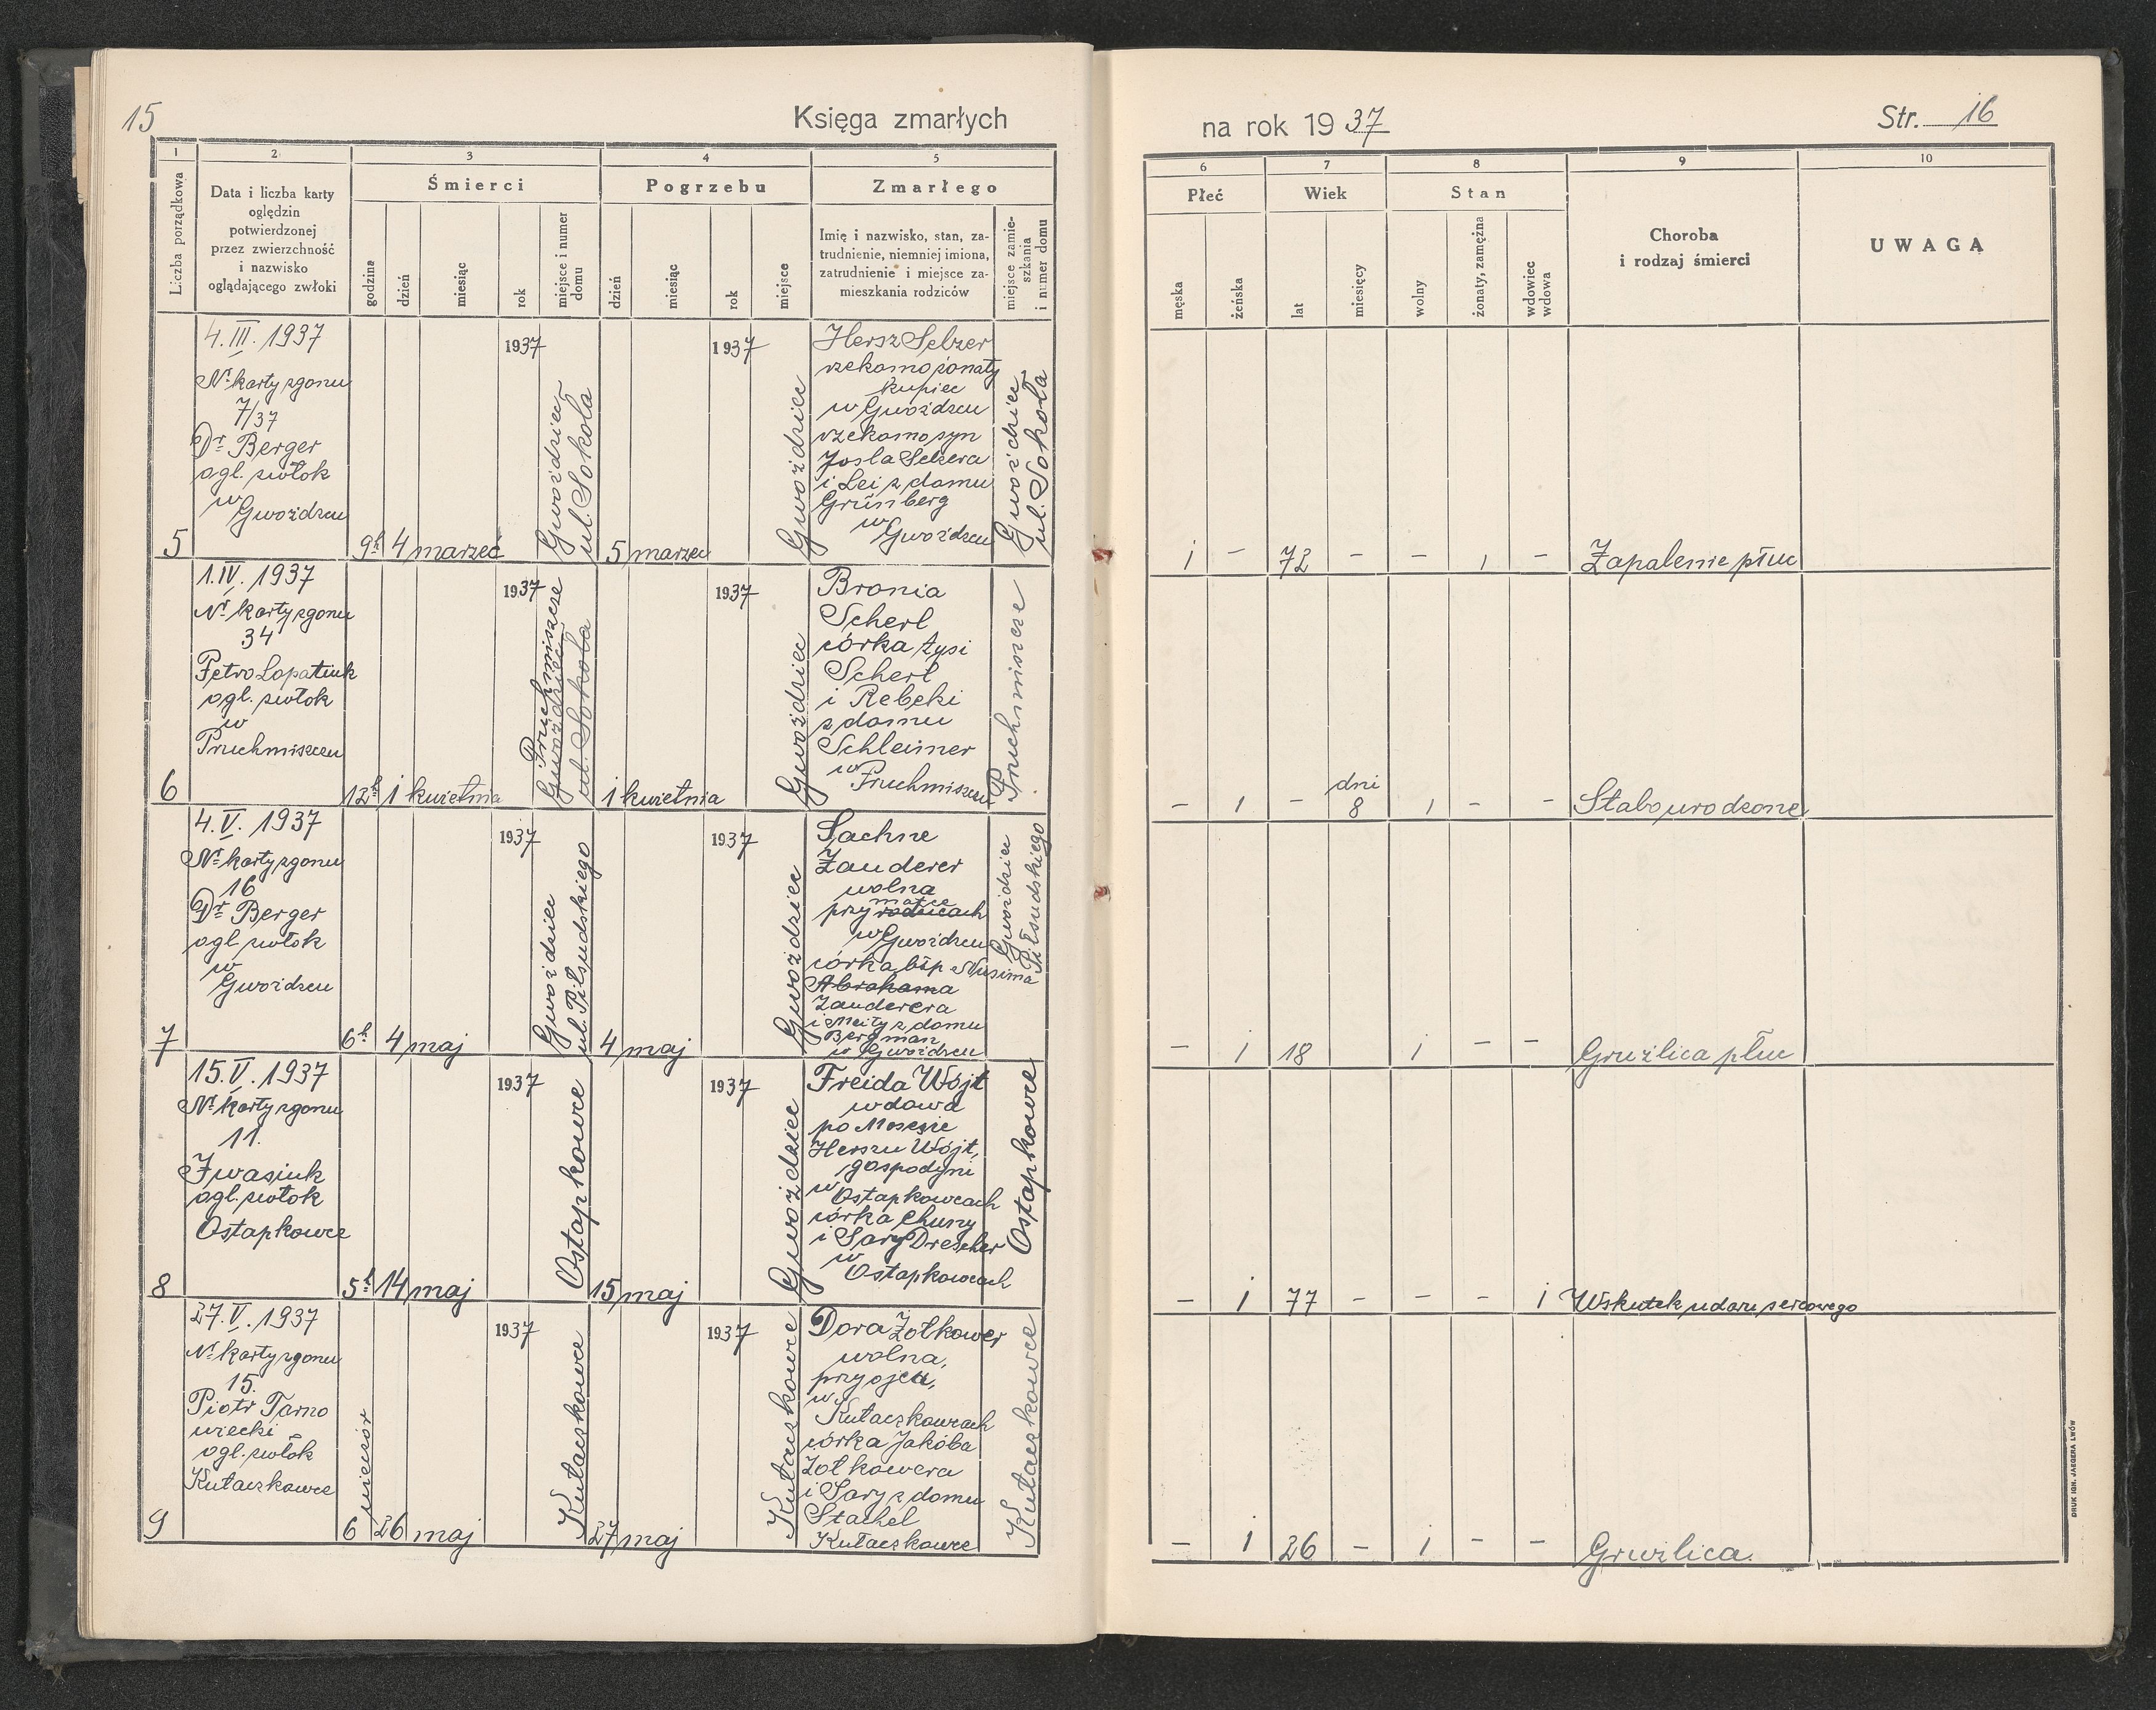 15
Księga zmarłych
na rok 1937
Str. 16
1
2
3
4
5
6
7
8
9
10
Liczba porządkowa
Data i liczba karty
oględzin
potwierdzonej
przez zwierzchność
i nazwisko
oglądającego zwłoki
Śmierci
godzina
dzień
miesiąc
rok
miejsce i numer
domu
Pogrzebu
dzień
miesiąc
rok
miejsce
Zmarłego
Imię i nazwisko, stan, za-
trudnienie, niemniej imiona,
zatrudnienie i miejsce za-
mieszkania rodziców
miejsce zamie-
szkania
i numer domu
Płeć
męska
żeńska
Wiek
lat
miesięcy
Stan
wolny
żonaty, zamężna
wdowiec
wdowa
Choroba
i rodzaj śmierci
UWAGA
5
4. III. 1937
Nr karty zgonu
7/37
Dr Berger
ogl. zwłok
w
Gwoźdzcu
9h 4 marzec 1937
Gwoździec
ul. Sokoła
5 marzec 1937
Gwoździec
Hersz Selzer
rzekomo żonaty
kupiec
w Gwoźdzcu
rzekomo syn
Josla Selzera
i Lei z domu
Grünberg
w
Gwoźdzcu
Gwoździec
ul. Sokoła
1 - 72 - - 1 - Zapalenie płuc
6
1. IV. 1937
Nr karty zgonu
34
Petro Lopatiuk
ogl. zwłok
w
Pruchniszczu
12h 1 kwietnia 1937
Pruchniszcze
Gwoździec
ul. Sokoła
1 kwietnia 1937
Gwoździec
Bronia
Scherl
córka Zysi
Scherl
i Rebeki
z domu
Schleimer
w
Pruchniszczu
Pruchniszcze
- 1 - dni
8 1 - - Słabo urodzone
7
4. V. 1937
Nr karty zgonu
16
Dr Berger
ogl. zwłok
w
Gwoźdzcu
6h 4 maj 1937
Gwoździec
ul. Piłsudskiego
4 maj 1937
Gwoździec
Sachne
Zauderer
wolna
matce
przy rodzicach
w Gwoźdzcu
córka błp Nusima
Abrahama
Zauderera
i Meity z domu
Bergman
w Gwoźdzcu
Gwoździec
Piłsudskiego
- 1 18 1 - - Gruźlica płuc
8
15. V. 1937
Nr karty zgonu
11.
Iwasiuk
ogl. zwłok
Ostapkowce
5h 14 maj 1937
Ostapkowce
15 maj 1937
Gwoździec
Freida Wójt
wdowa
po Moseżie
Herszu Wójt,
gospodyni
w
Ostapkowcach
córka Chuny
i Sary Drescher
w
Ostapkowcach
Ostapkowce
- 1 77 - - - 1 Wskutek udaru sercowego
9
27. V. 1937
Nr karty zgonu
15.
Piotr Tarno
wiecki
ogl. zwłok
Kułaczkowce
6 wieczór 26 maj 1937
Kułaczkowce
27 maj 1937
Kułaczkowce
Dora Zołkower
wolna,
przy ojcu,
w
Kułaczkowcach
córka Jakóba
Zołkowera
i Sary z domu
Stachel
Kułaczkowce
Kułaczkowce
- 1 26 - 1 - - Gruźlica.
DRUK IGN. JAEGERA LWÓW